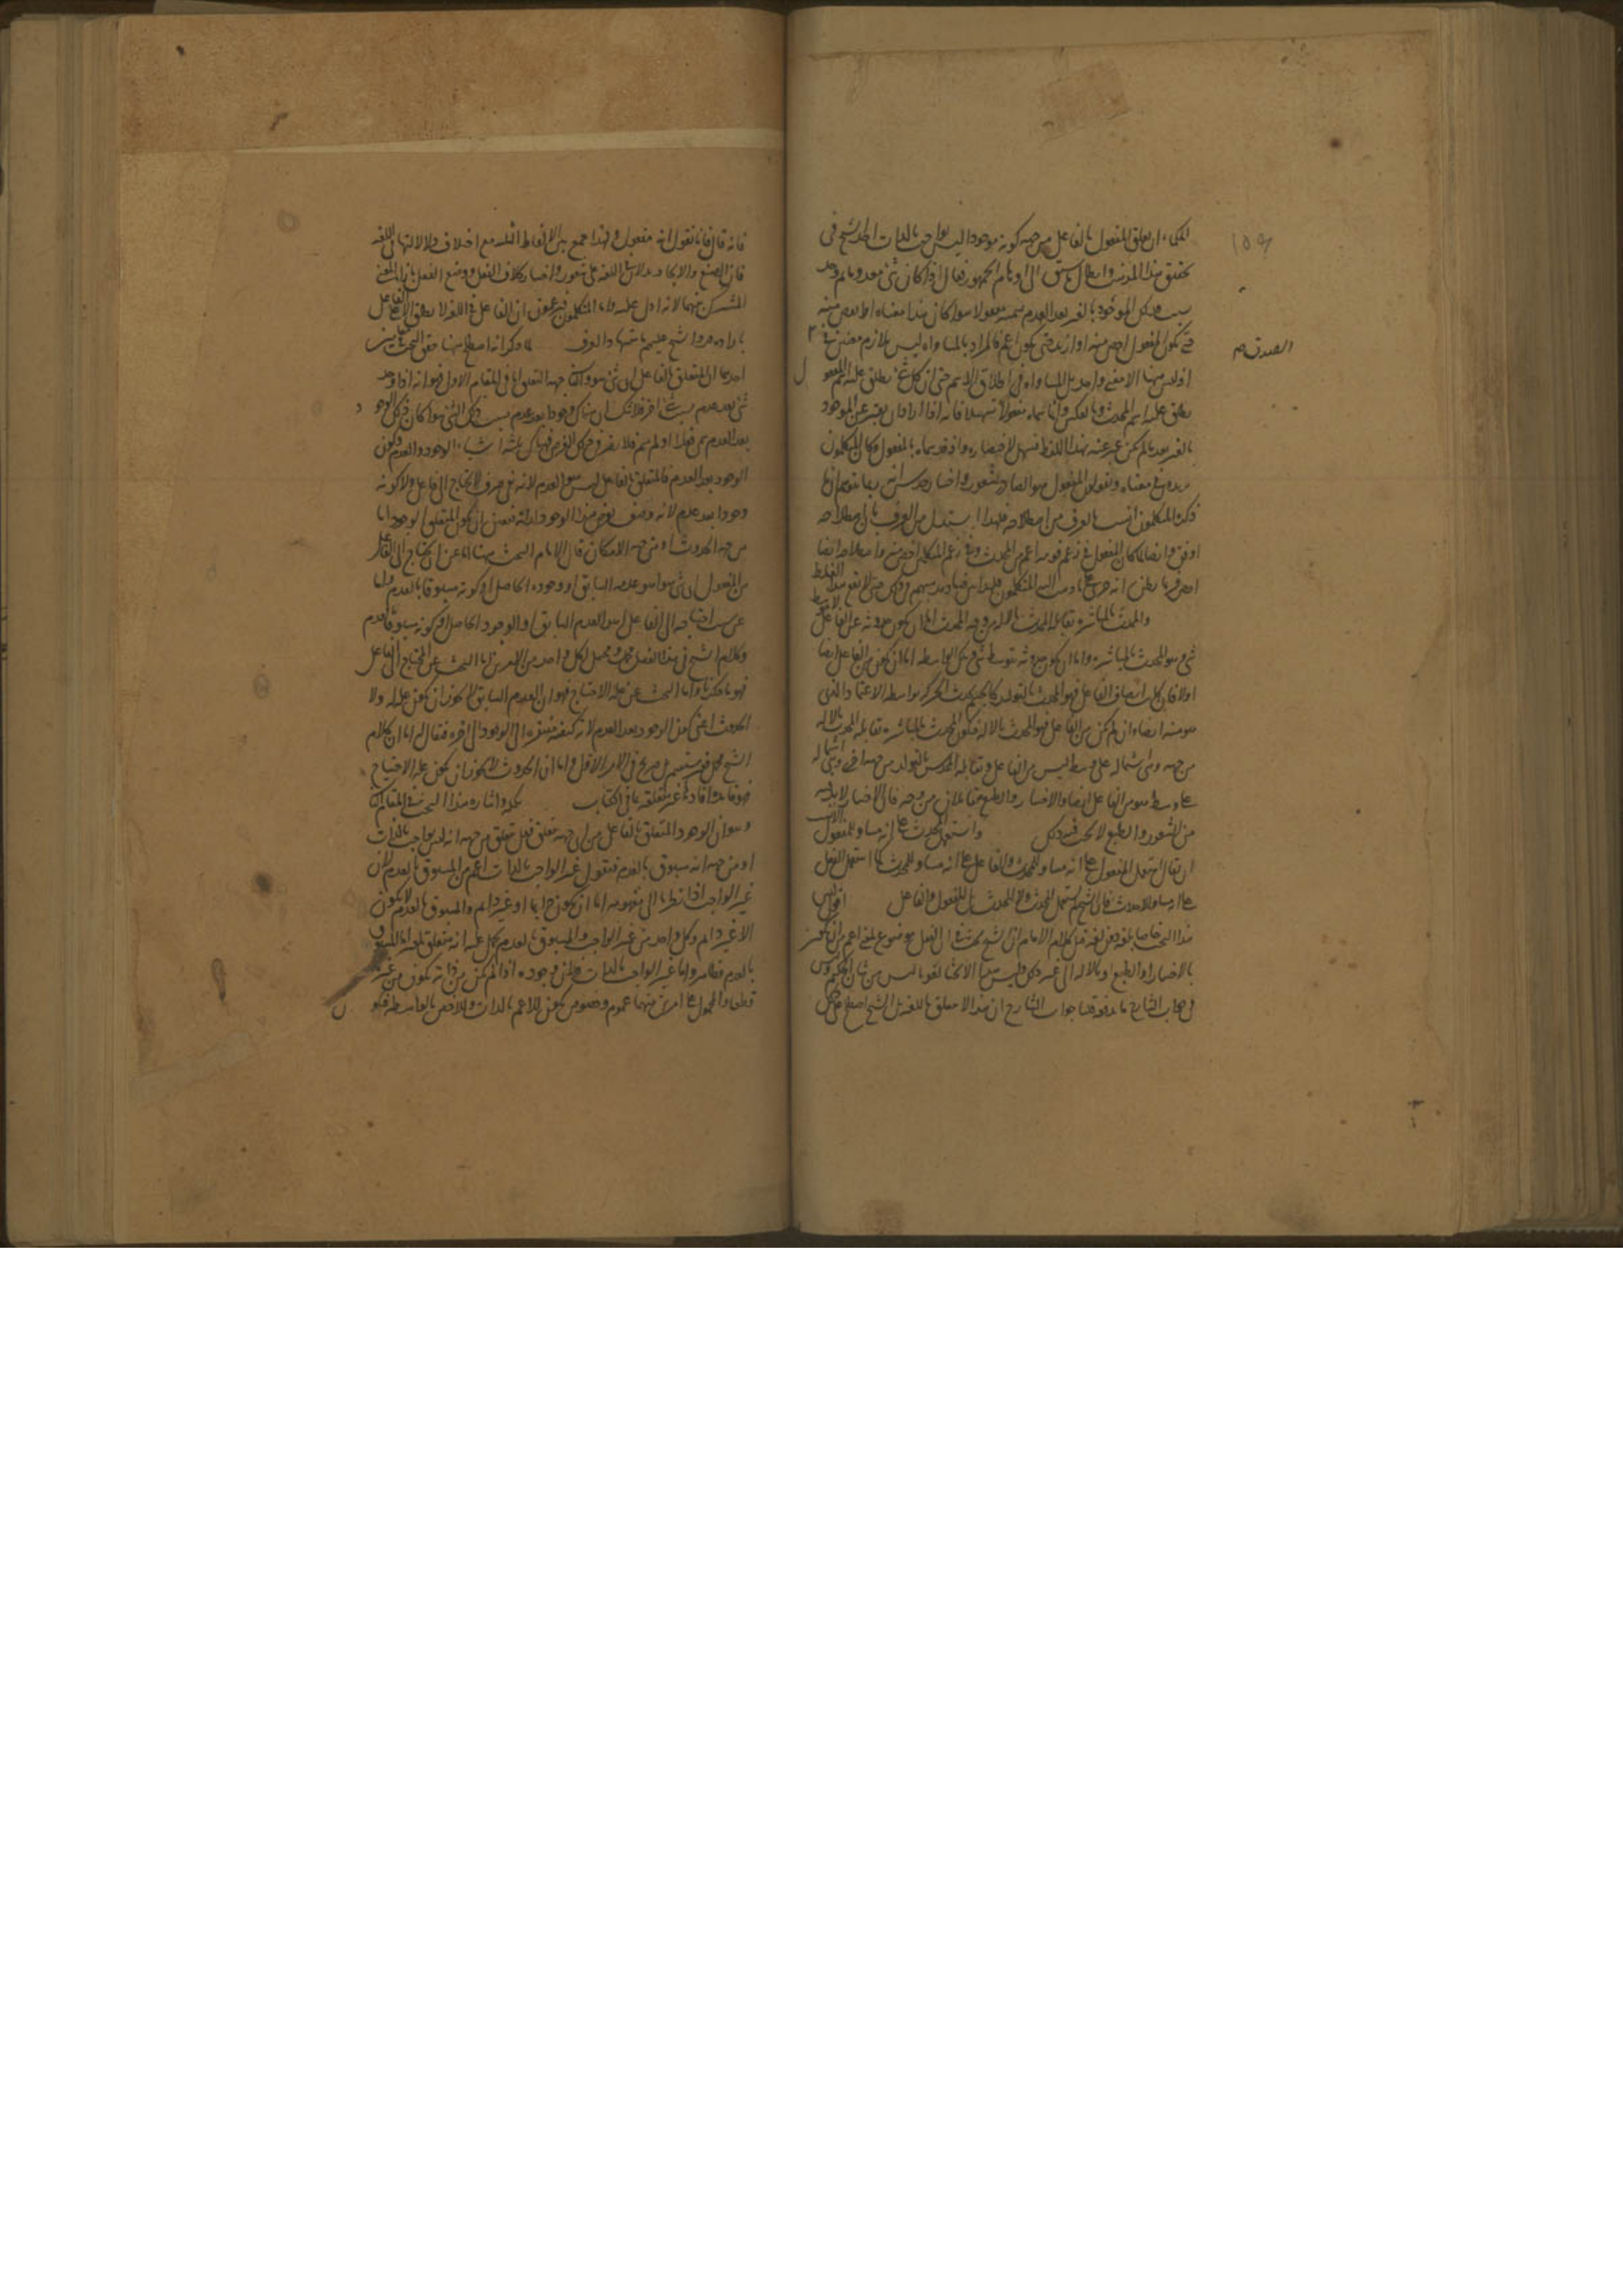 الحكماء ان تعلق المفعول بالفاعل من جهة كونه موجودا ليس بواجب بالذات اخذ الشيخ فى
تحقيق هذا المذهب وابطال ما سبق الى اوهام الجمهور فقال اذا كان شئ معدوما ثم وجد
بسبب ذلك الموجود بالغير بعد العدم نسميه مفعولا سوا كان هذا معناه او اخص منه
حتى يكون المفعول اخص منه او ازيد حتى يكون اعم فالمراد بالمساواه ليس تلازم معنيين
اذ ليس ههنا الا معنى واحد بل المساواه فى اطلاق الاسم حتى ان كل شئ يطلق عليه اسم المفعول
يطلق عليه اسم المحدث وبالعكس وانما سماه مفعولا تسهيلا فانه اذا اراد ان يعبر عن الموجود
بالغير بعد ما لم يكن عبر عنه بهذا اللفظ فسهل لاختصاره واذ قد سماه بالمفعول وكان المتكلمون
يزيدون فى معناه ويقولون المفعول هو الصادر بشعور واختيار
ذكره المتكلمون انسب بالعرف من اصطلاحه فلهذا استدل من العرف بان اصطلاحه
اوفق وايضا لما كان المفعول فى زعم قوم اعم من المحدث وفى زعم المتكلمين اخص منه واصطلاحه ايضا
والمحدث بالمباشرة يقابله المحدث بالالة من وجه المحدث اما ان يكون حدوثه عن الفاعل
شئ وهو المحدث بالمباشرة واما ان يكون حدوثه بتوسط شئ وذلك الواسطة اما ان يكون من الفاعل ايضا
اولا فان كان ايضا من الفاعل فهو المحدث بالتولد كما يحدث الحركة بواسطة الاعتماد الذى
هو منه ايضا وان لم يكن من الفاعل فهو المحدث بالالة فيكون المحدث بالمباشرة يقابله المحدث بالالة
من جهة وهى اشتماله على وسط ليس من الفاعل ويقابله المحدث بالتولد من جهة اخرى وهى اشتماله
على وسط هو من الفاعل ايضا والاختيار والطبع متقابلان من وجه فان الاختيار لا بد فيه
من الشعور والطبع لا يجب فيه ذلك واستعمل المحدث على انه مساو للمفعول
ان يقال استعمل المفعول على انه مساو للمحدث والفاعل على انه مساو للمحدث كما استعمل الفعل
على انه مساو للاحداث فان الشيخ لم يستعمل المحدث والمحدث بل المفعول والفاعل اقول ليس
هذا البحث خاصا بلغة دون لغة نقل كلام الامام ان الشيخ بحث فى ان الفعل موضوع لمعنى اعم من ان يكون
بالاختيار او بالطبع او بالالة الى غير ذلك وليس هذا الا بحثا لغويا ليس من شان الحكيم
فاجاب الشارح جواب الشارح ان هذا لا يتعلق باللغة بل الشيخ اصطلح على
١٥٩
الصدق صم
فانه قال فانا نقول انه مفعول ولهذا جمع بين الالفاظ الثلثه مع اختلاف دلالاتها فى اللغه
فان الصنع والايجاد يدلان فى اللغة على شعور واختيار بخلاف الفعل ووضع الفعل بازاء المعنى
المشترك بينها لانه ادل عليه واما المتكلمون فيزعمون ان الفاعل فى اللغة لا يطلق الا على الفاعل
بارادة فرد الشيخ عليهم باشتهاد العرف لما ذكر انه اصطلح ههنا حقق البحث فى مقامين
احدهما ان المتعلق بالفاعل اى شئ هو والثانى جهة التعلق اما فى المقام الاول فهو انه اذا وجد
شئ بعد عدم بسبب شئ اخر فلا شك ان هناك وجودا بعد عدم بسبب ذلك الشئ سوا كان ذلك الوجود
بعد العدم سمى فعلا او لم يسم فلا يضر فى ذلك الغرض فهناك ثلثة اشياء الوجود والعدم وكون
الوجود بعد العدم فالمتعلق بالفاعل ليس هو العدم لانه نفى صرف لا يحتاج الى الفاعل ولا كونه
وجودا بعد عدم لانه وصف يعرض لهذا الوجود لذاته فتعين ان يكون المتعلق الوجود اما
من جهة الحدوث او من جهة الامكان قال الامام البحث ههنا اما عن ان المحتاج الى الفاعل
من المفعول اى شئ هو اهو عدمه السابق او وجوده الحاصل او كونه مسبوقا بالعدم واما
عن سبب احتياجه الى الفاعل اهو العدم السابق او الوجود الحاصل او كونه مسبوقا بالعدم
وكلام الشيخ فى هذا الفصل مجمل ومحتمل لكل واحد من الامرين اما البحث عن المحتاج الى الفاعل
فهو ما ذكرناه واما البحث عن علة الاحتياج فهو ان العدم السابق لا يجوز ان يكون علة له ولا
الحدوث اعنى كون الوجود بعد العدم لانه كيفية مفتقره الى الوجود الى اخره فقال اما ان كلام
الشيخ مجمل فغير مستقيم بل صريح فى الامر الاول واما ان الحدوث لا يجوز ان يكون علة الاحتياج
فهو فائدة افادها غير متعلقة بما فى الكتاب تكملة واشارة هذا البحث فى المقام الثانى
وهو ان الوجود المتعلق بالفاعل من اى جهة يتعلق فهل تعلق من جهة انه ليس بواجب بالذات
او من جهة انه مسبوق بالعدم فنقول غير الواجب بالذات اعم من المسبوق بالعدم لان
غير الواجب اذا نظرنا الى مفهومه اما ان يكون دايما او غير دايم والمسبوق بالعدم لا يكون
الا غير دايم وكل واحد من غير الواجب والمسبوق بالعدم يحمل عليه انه متعلق بالغير اما المسبوق
بالعدم فظاهر واما غير الواجب بالذات فلان وجوده اذا لم يكن من ذاته يكون من غيره
قطعا والمحمول على امرين بينهما عموم وخصوص يكون للاعم بالذات وللاخص بالواسطة فيكون